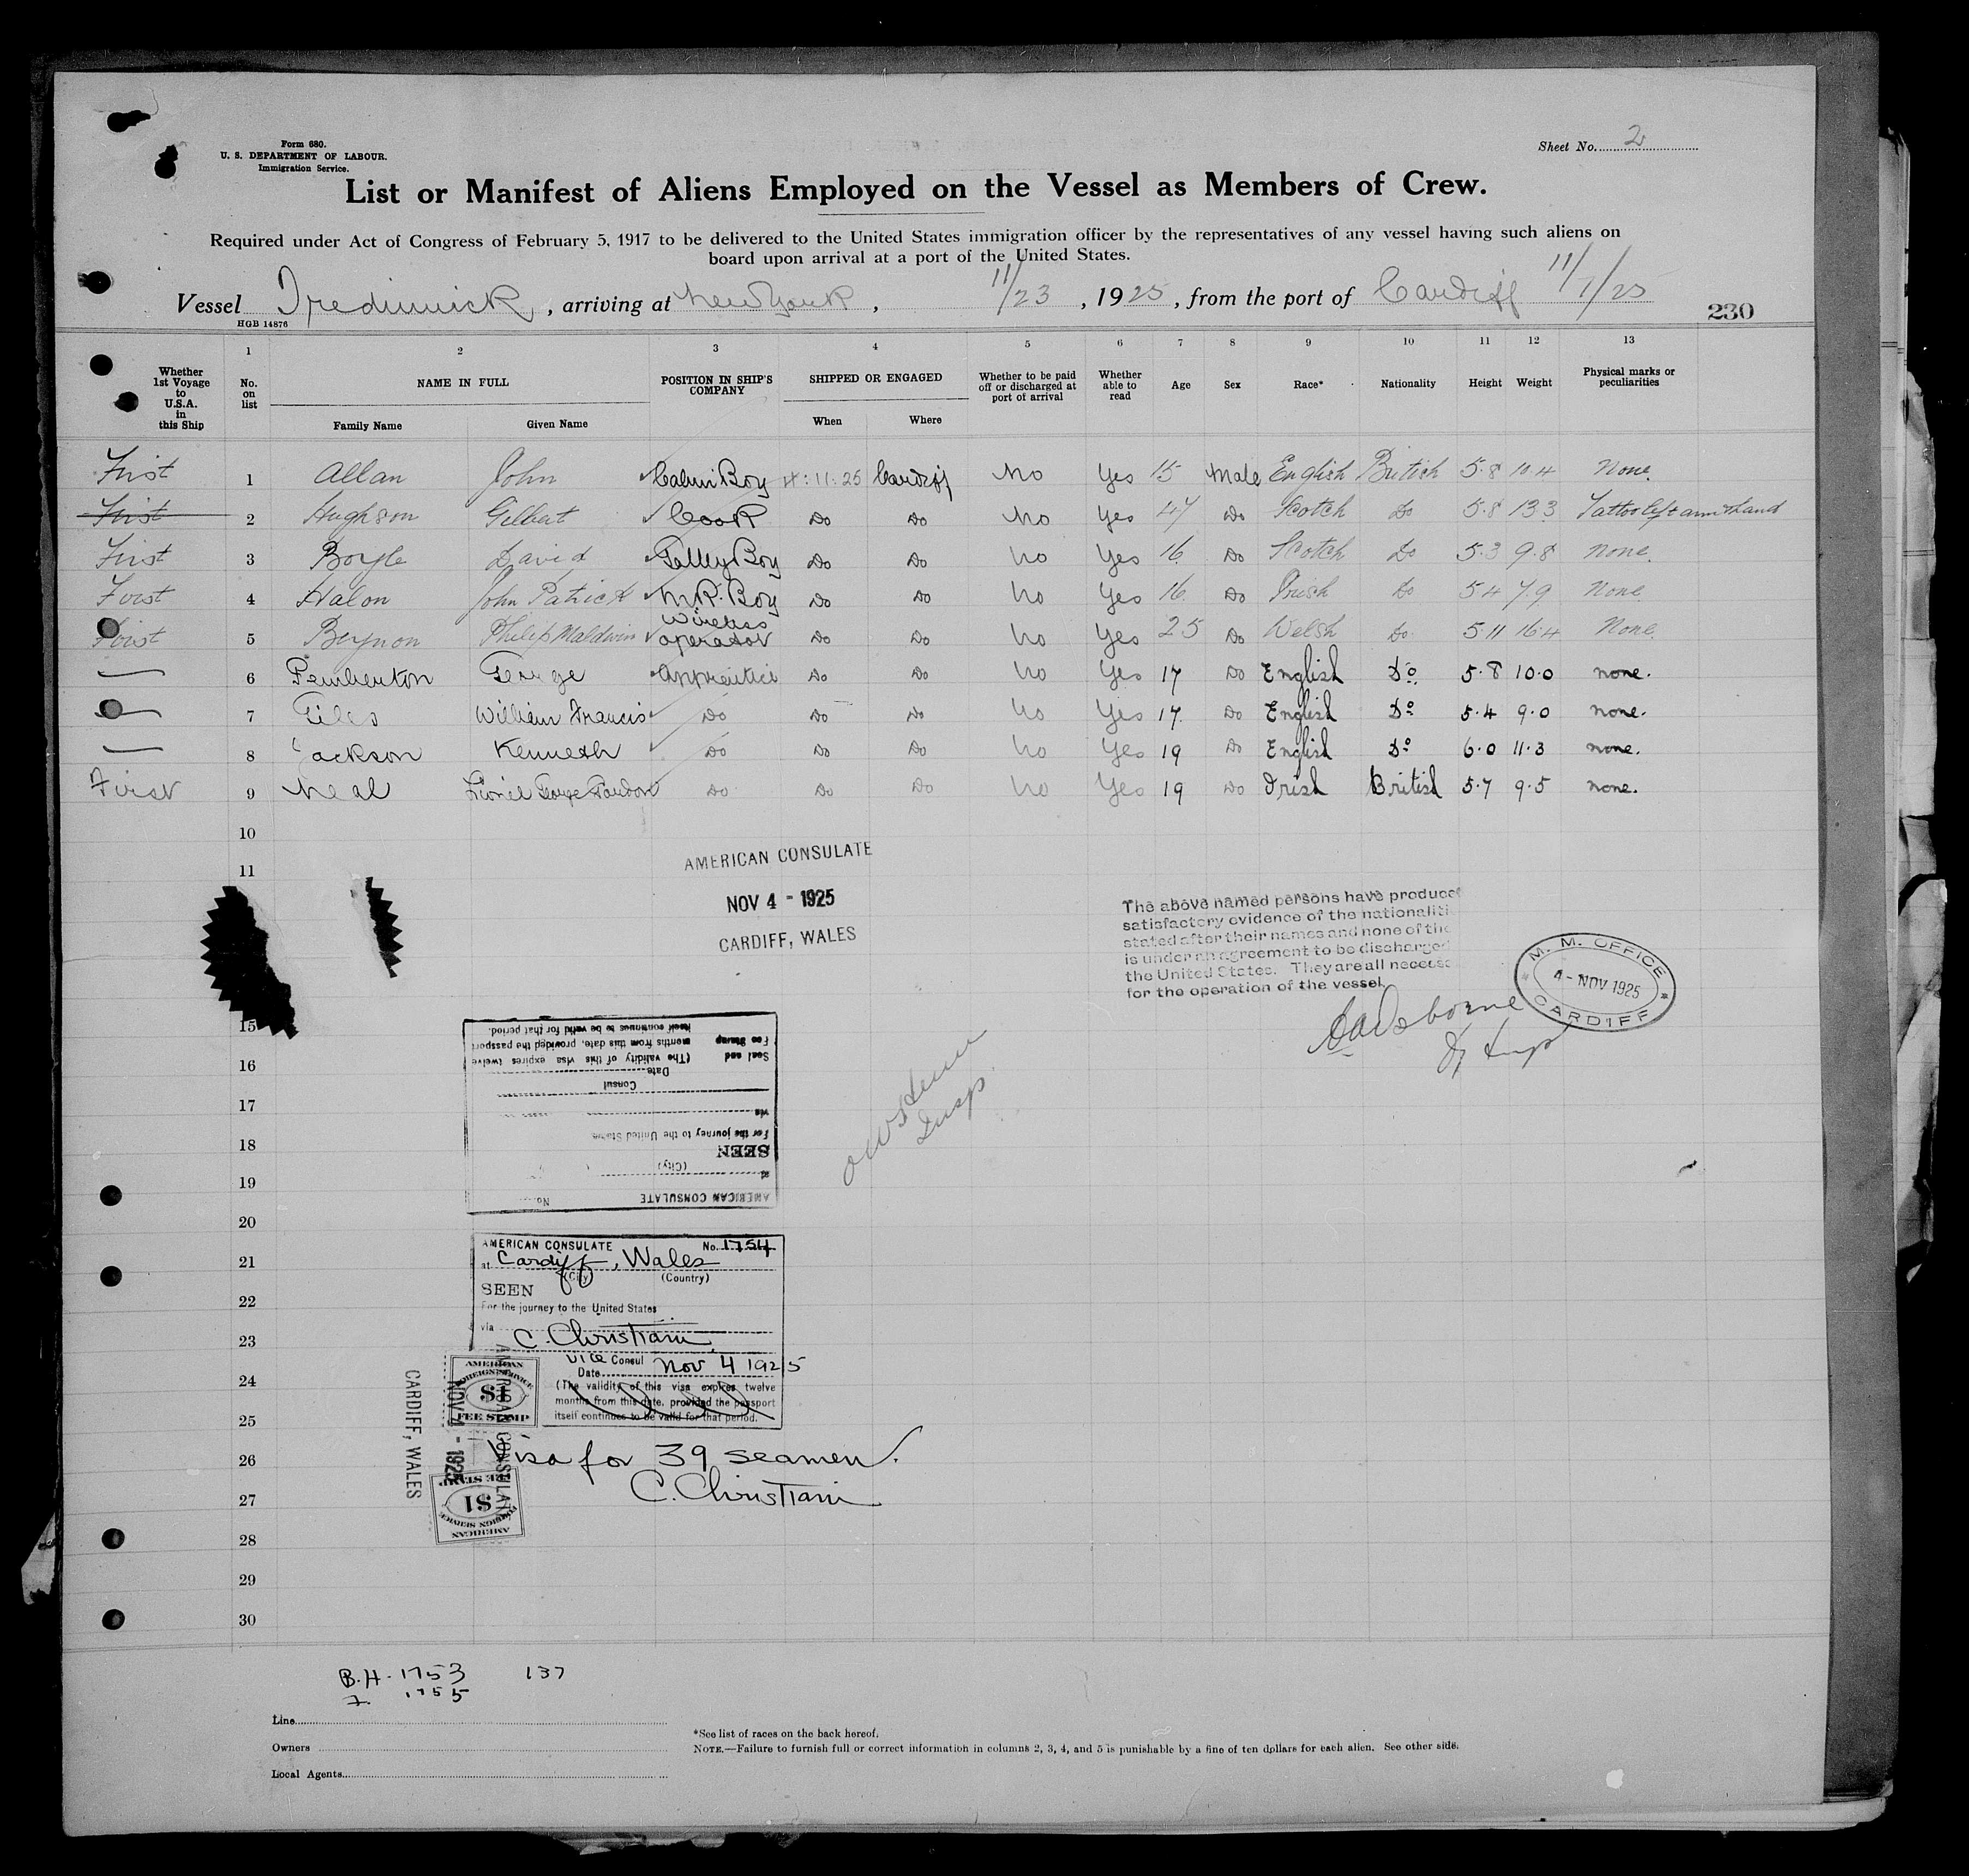 Form 680.
U. S. DEPARTMENT OF LABOUR.
Immigration Service.
Sheet No. 2
List or Manifest of Aliens Employed on the Vessel as Members of Crew.
Required under Act of Congress of February 5, 1917 to be delivered to the United States immigration officer by the representatives of any vessel having such aliens on
board upon arrival at a port of the United States.
Vessel Tredinnick, arriving at New York, 11/23, 1925, from the port of Cardiff 11/7/25
HGB 14876
230
1 2 3 4 5 6 7 8 9 10 11 12 13
Whether 1st Voyage to U.S.A. in this Ship
No. on list
NAME IN FULL
Family Name
Given Name
POSITION IN SHIP'S COMPANY
SHIPPED OR ENGAGED
When
Where
Whether to be paid off or discharged at port of arrival
Whether able to read
Age
Sex
Race*
Nationality
Height
Weight
Physical marks or peculiarities
First 1 Allan John Cabin Boy 4:11:25 Cardiff No Yes 15 Male English British 5.8 10.4 None.
First 2 Hughson Gilbert Cook Do Do No Yes 47 Do Scotch Do 5.8 13.3 Tattoo left arm & hand
First 3 Boyle David Galley Boy Do Do No Yes 16 Do Scotch Do 5.3 9.8 None.
First 4 Halon John Patrick M.R. Boy Do Do No Yes 16 Do Irish Do 5.4 7.9 None.
First 5 Beynon Philip Maldwin Wireless operator Do Do No Yes 25 Do Welsh Do 5.11 16.4 None.
— 6 Pemberton George Apprentice Do Do No Yes 17 Do English Do 5.8 10.0 none.
— 7 Giles William Francis Do Do Do No Yes 17 Do English Do 5.4 9.0 none.
— 8 Jackson Kenneth Do Do Do No Yes 19 Do English Do 6.0 11.3 none.
First 9 Neal Lionel George Do Do Do No Yes 19 Do Irish British 5.7 9.5 none.
10
11
AMERICAN CONSULATE
NOV 4 - 1925
CARDIFF, WALES
The above named persons have produced
satisfactory evidence of the nationaliti
stated after their names and none of the
is under an agreement to be discharged
the United States. They are all necess
for the operation of the vessel
M. M. OFFICE
4 - NOV 1925
CARDIFF
15
16
17
18
19
20
AMERICAN CONSULATE No.
at
(City)
SEEN
For the journey to the United States
via
Consul
Date
Seal and Fee Stamp
(The validity of this visa expires twelve
months from this date, provided the passport
itself continues to be valid for that period.
21
22
23
24
25
26
27
28
29
30
AMERICAN CONSULATE No. 1754
at Cardiff, Wales
(City) (Country)
SEEN
For the journey to the United States
via
C. Christiani
Vice Consul
Date Nov 4 1925
(The validity of this visa expires twelve
months from this date, provided the passport
itself continues to be valid for that period.
AMERICAN FOREIGN SERVICE
$1
FEE STAMP
AMERICAN CONSULATE
NOV 4 - 1925
CARDIFF, WALES
Visa for 39 seamen.
C. Christiani
AMERICAN FOREIGN SERVICE
$1
FEE STAMP
B.H. 1753 137
1755
Line
Owners
Local Agents
*See list of races on the back hereof.
NOTE.—Failure to furnish full or correct information in columns 2, 3, 4, and 5 is punishable by a fine of ten dollars for each alien. See other side.